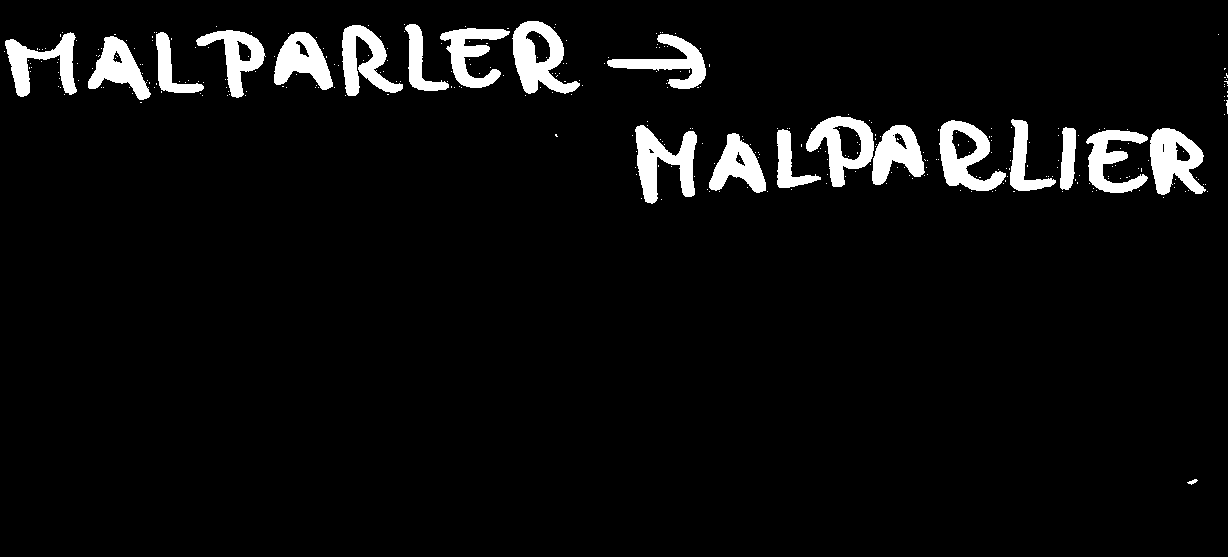 MALPARLER →
MALPARLIER